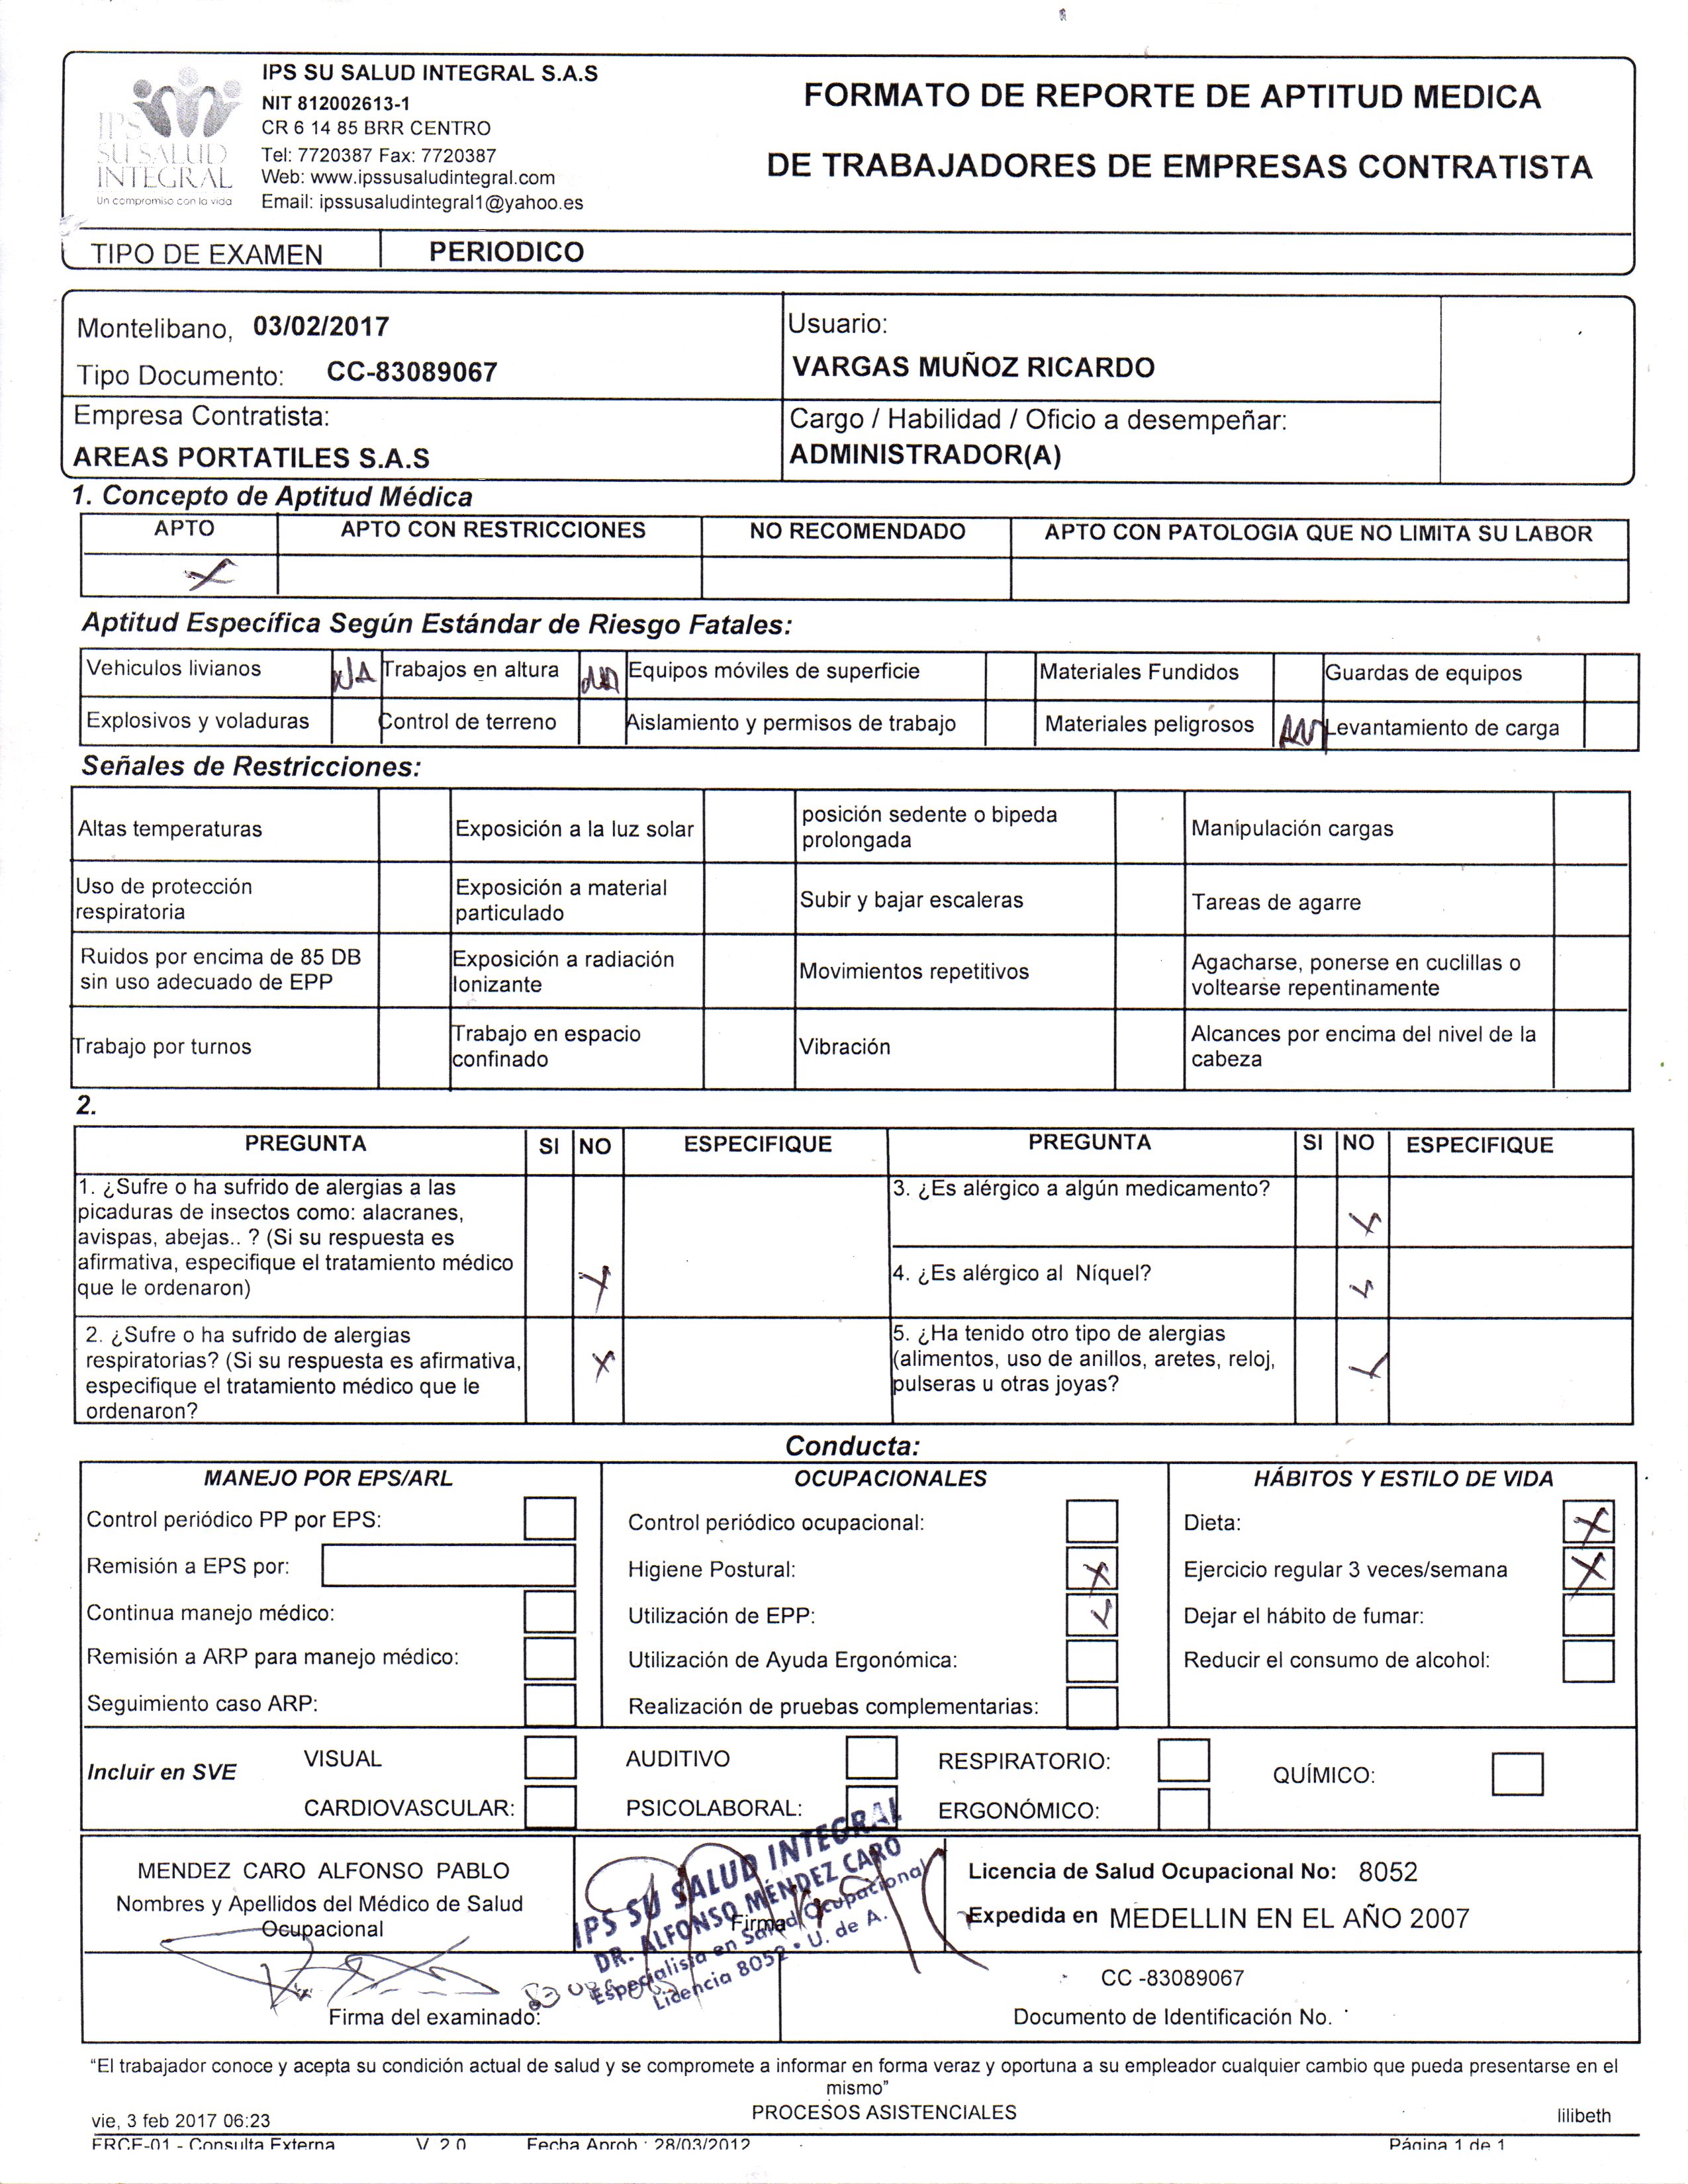 IPS SU SALUD INTEGRAL S.A.S
NIT 812002613-1
CR 6 14 85 BRR CENTRO
Tel: 7720387 Fax: 7720387
Web: www.ipssusaludintegral.com
Email: ipssusaludintegral1@yahoo.es
IPS
SU SALUD
INTEGRAL
Un compromiso con la vida
FORMATO DE REPORTE DE APTITUD MEDICA
DE TRABAJADORES DE EMPRESAS CONTRATISTA
TIPO DE EXAMEN PERIODICO
Montelibano, 03/02/2017
Tipo Documento: CC-83089067
Usuario:
VARGAS MUÑOZ RICARDO
Empresa Contratista:
AREAS PORTATILES S.A.S
Cargo / Habilidad / Oficio a desempeñar:
ADMINISTRADOR(A)
1. Concepto de Aptitud Médica
APTO APTO CON RESTRICCIONES NO RECOMENDADO APTO CON PATOLOGIA QUE NO LIMITA SU LABOR
X
Aptitud Específica Según Estándar de Riesgo Fatales:
Vehiculos livianos N/A Trabajos en altura Equipos móviles de superficie Materiales Fundidos Guardas de equipos
Explosivos y voladuras Control de terreno Aislamiento y permisos de trabajo Materiales peligrosos Levantamiento de carga
Señales de Restricciones:
Altas temperaturas Exposición a la luz solar posición sedente o bipeda prolongada Manipulación cargas
Uso de protección respiratoria Exposición a material particulado Subir y bajar escaleras Tareas de agarre
Ruidos por encima de 85 DB sin uso adecuado de EPP Exposición a radiación Ionizante Movimientos repetitivos Agacharse, ponerse en cuclillas o voltearse repentinamente
Trabajo por turnos Trabajo en espacio confinado Vibración Alcances por encima del nivel de la cabeza
2.
PREGUNTA SI NO ESPECIFIQUE PREGUNTA SI NO ESPECIFIQUE
1. ¿Sufre o ha sufrido de alergias a las
picaduras de insectos como: alacranes,
avispas, abejas.. ? (Si su respuesta es
afirmativa, especifique el tratamiento médico
que le ordenaron) X
3. ¿Es alérgico a algún medicamento? X
4. ¿Es alérgico al Níquel? X
2. ¿Sufre o ha sufrido de alergias
respiratorias? (Si su respuesta es afirmativa,
especifique el tratamiento médico que le
ordenaron? X
5. ¿Ha tenido otro tipo de alergias
(alimentos, uso de anillos, aretes, reloj,
pulseras u otras joyas? X
Conducta:
MANEJO POR EPS/ARL OCUPACIONALES HÁBITOS Y ESTILO DE VIDA
Control periódico PP por EPS: Control periódico ocupacional: Dieta: X
Remisión a EPS por: Higiene Postural: X Ejercicio regular 3 veces/semana X
Continua manejo médico: Utilización de EPP: X Dejar el hábito de fumar:
Remisión a ARP para manejo médico: Utilización de Ayuda Ergonómica: Reducir el consumo de alcohol:
Seguimiento caso ARP: Realización de pruebas complementarias:
Incluir en SVE VISUAL AUDITIVO RESPIRATORIO: QUÍMICO:
CARDIOVASCULAR: PSICOLABORAL: ERGONÓMICO:
MENDEZ CARO ALFONSO PABLO
Nombres y Apellidos del Médico de Salud
Ocupacional
IPS SU SALUD INTEGRAL
DR. ALFONSO MÉNDEZ CARO
Especialista en Salud Ocupacional
Licencia 8052 • U. de A.
Firma
Licencia de Salud Ocupacional No: 8052
Expedida en MEDELLIN EN EL AÑO 2007
Firma del examinado:
CC -83089067
Documento de Identificación No.
“El trabajador conoce y acepta su condición actual de salud y se compromete a informar en forma veraz y oportuna a su empleador cualquier cambio que pueda presentarse en el
mismo”
PROCESOS ASISTENCIALES
vie, 3 feb 2017 06:23 lilibeth
FRCE-01 - Consulta Externa V 2.0 Fecha Aprob : 28/03/2012 Página 1 de 1